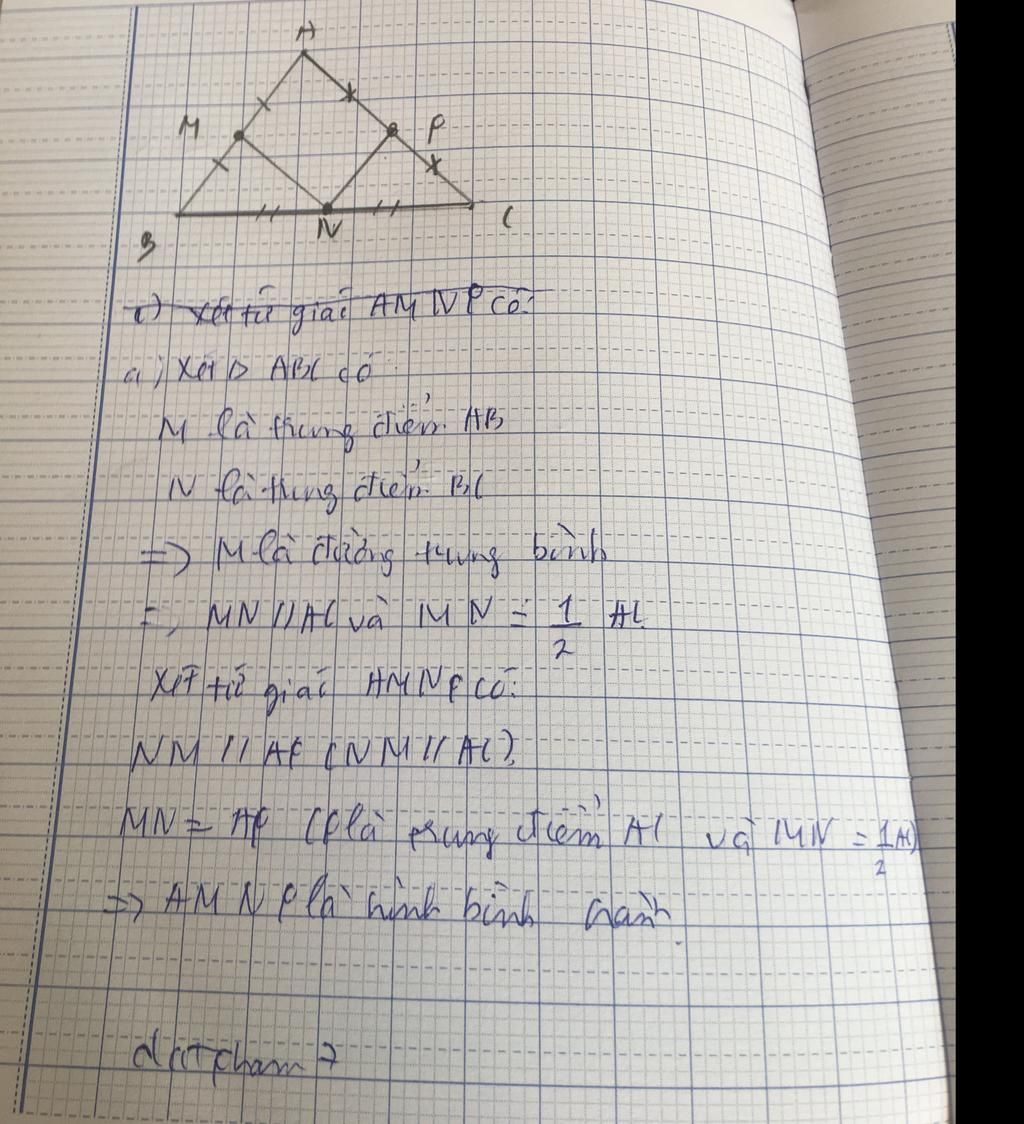 A
M
P
B
N
C
c) xét tứ giác AMNP có:
a) Xét Δ ABC có
M là trung điểm AB
N là trung điểm BC
=> M là đường trung bình
=> MN // AC và MN = 1/2 AC
Xét tứ giác AMNP có:
NM // AP (NM // AC)
MN = AP (P là trung điểm AC và MN = 1/2 AC)
=> AMNP là hình bình hành.